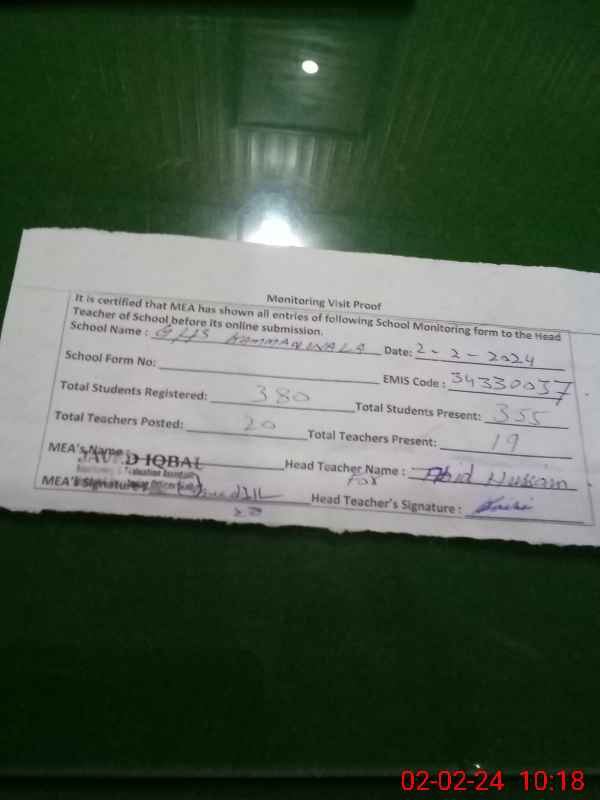 Monitoring Visit Proof
It is certified that MEA has shown all entries of following School Monitoring form to the Head
Teacher of School before its online submission.
School Name : GHS KAMMANWALA Date: 2-2-2024
School Form No: EMIS Code : 34330037
Total Students Registered: 380 Total Students Present: 355
Total Teachers Posted: 20 Total Teachers Present: 19
MEA's Name JAVED IQBAL Head Teacher Name : Abid Hussain
For
MEA's Signature Head Teacher's Signature :
02-02-24 10:18